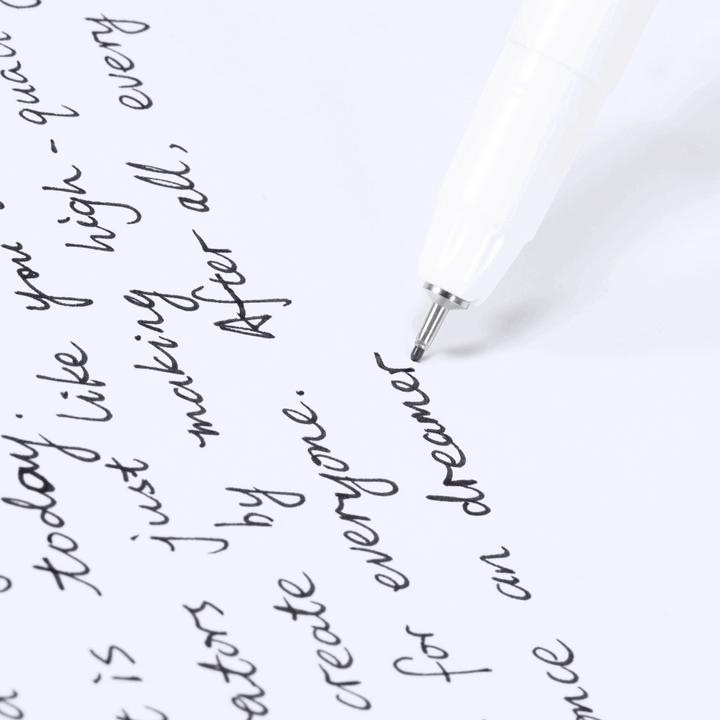 is today.
ators just like you
create by making high-quali
for everyone. After all, every
nce an dreamer